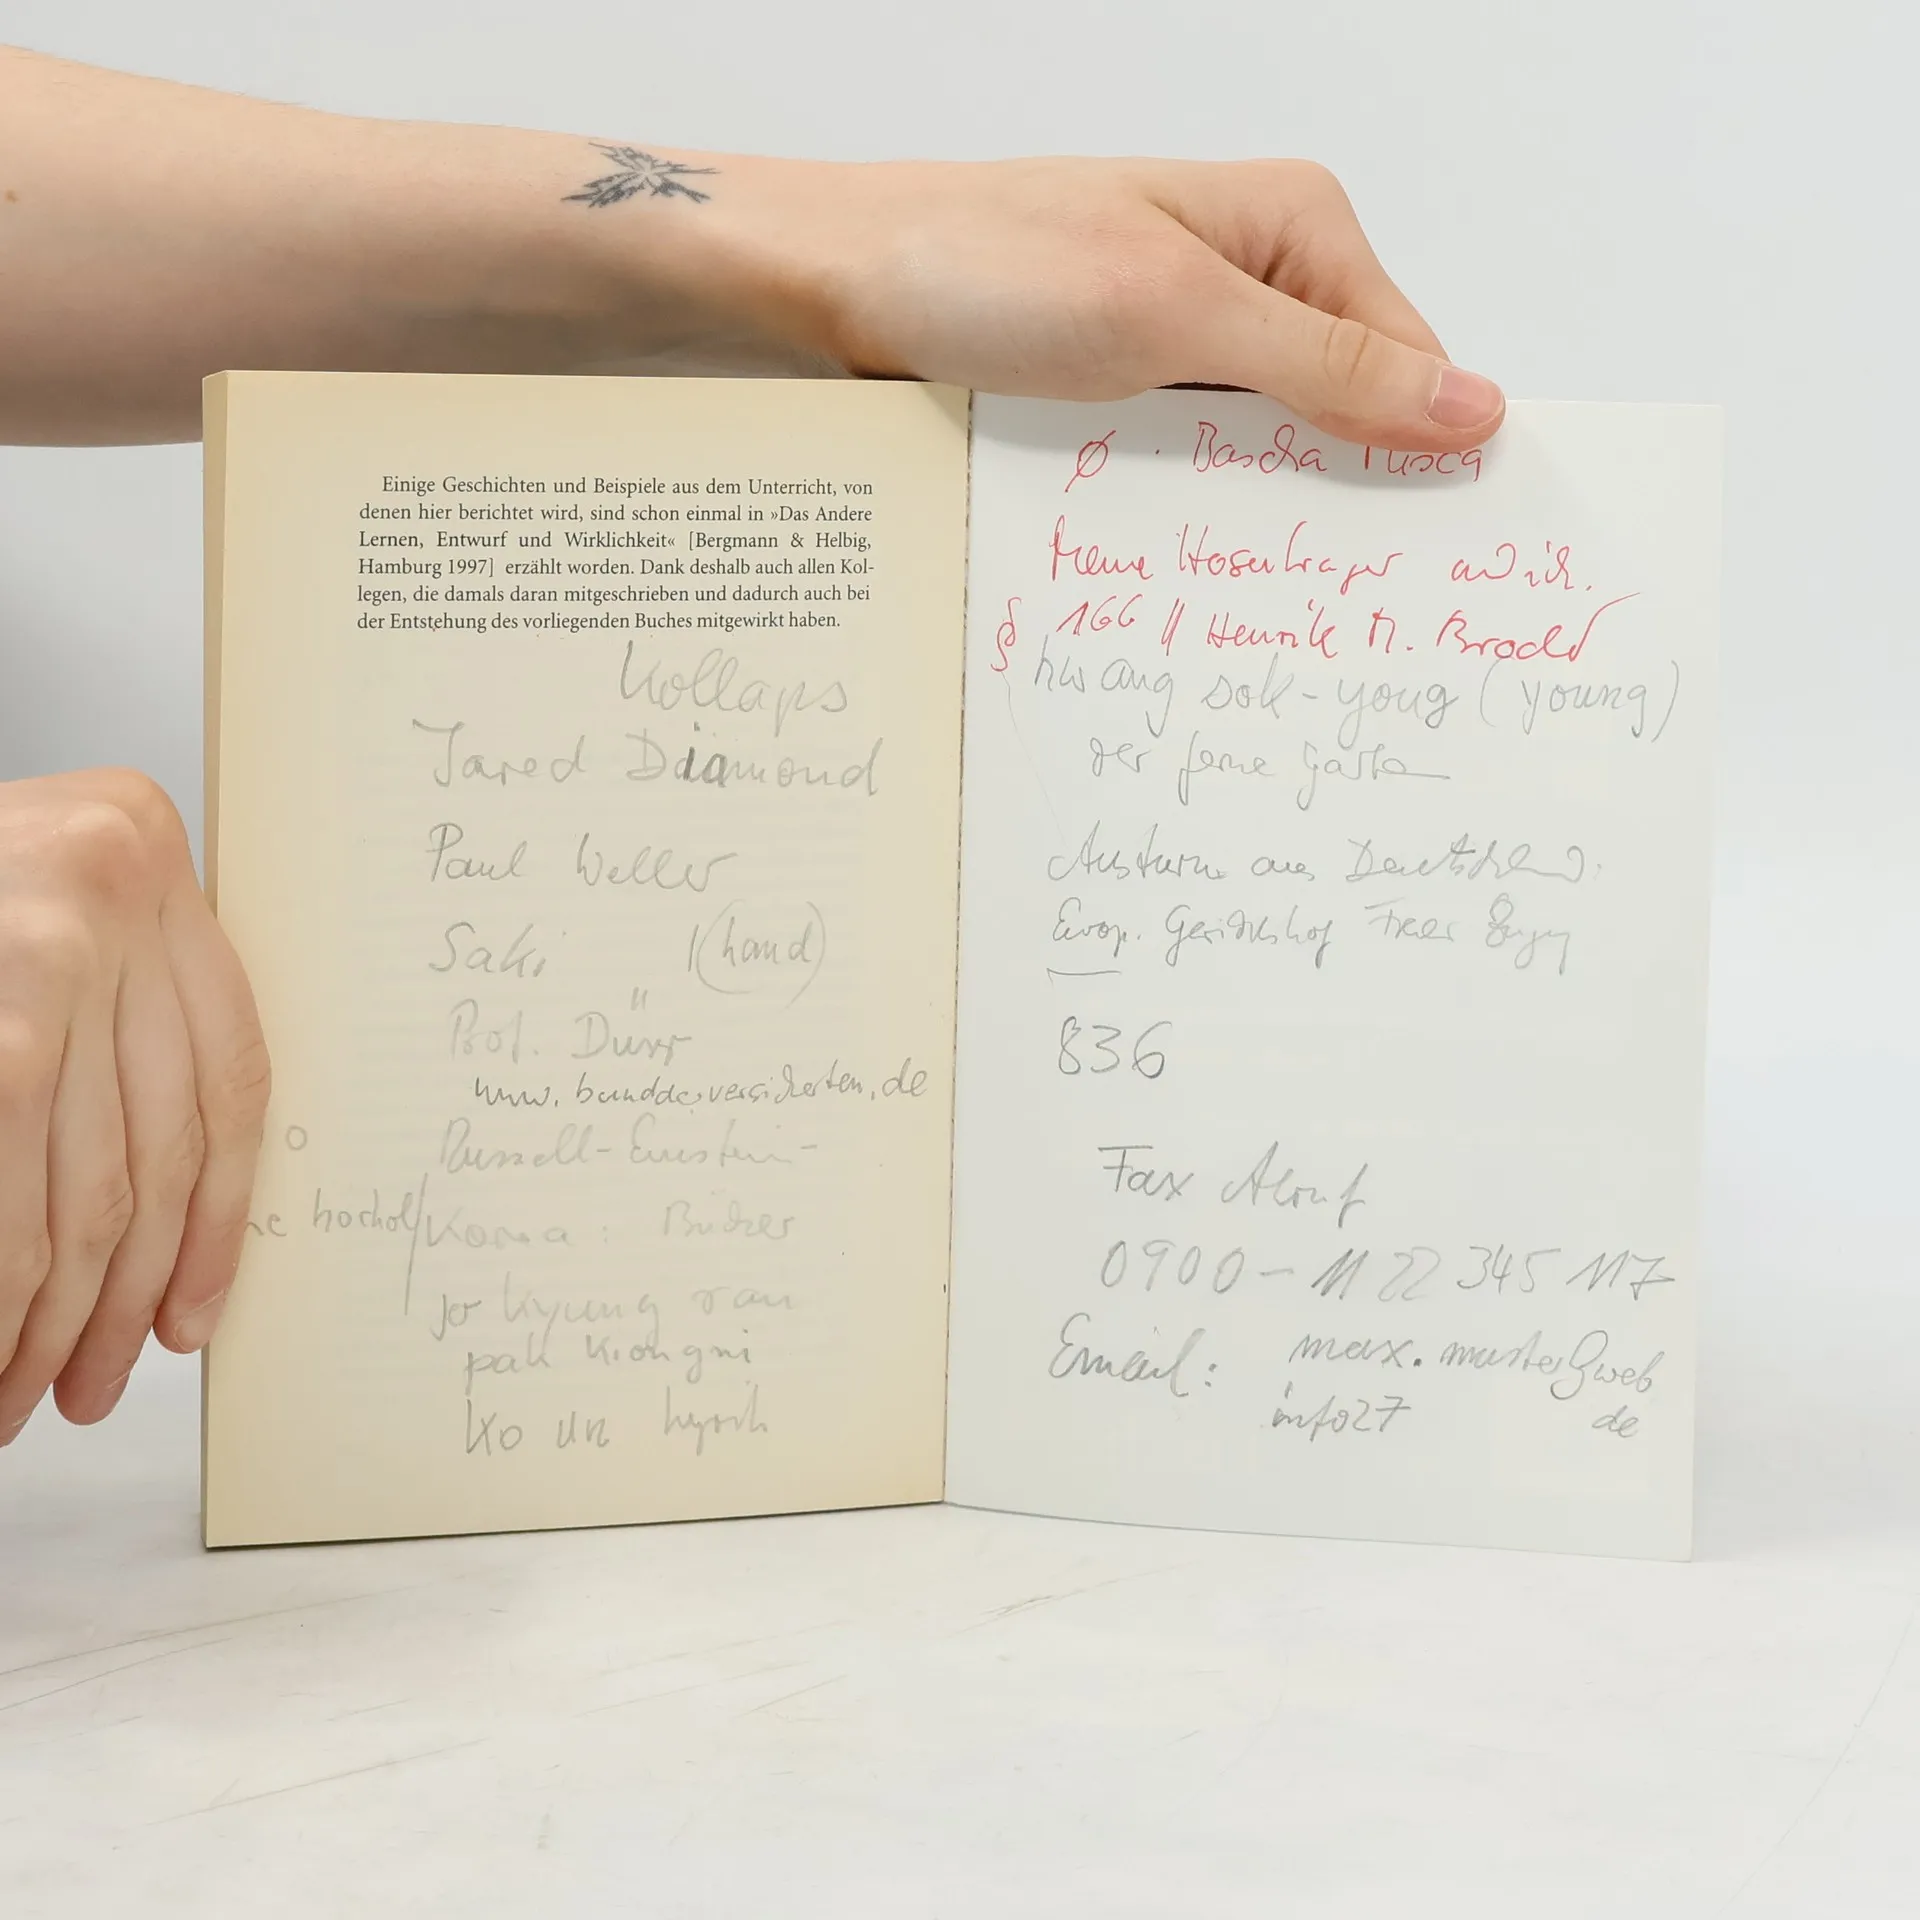 Einige Geschichten und Beispiele aus dem Unterricht, von
denen hier berichtet wird, sind schon einmal in »Das Andere
Lernen, Entwurf und Wirklichkeit« [Bergmann & Helbig,
Hamburg 1997] erzählt worden. Dank deshalb auch allen Kol-
legen, die damals daran mitgeschrieben und dadurch auch bei
der Entstehung des vorliegenden Buches mitgewirkt haben.
Kollaps
Jared Diamond
Paul Weller
Saki (hand)
Prof. Dürr
www.bundderversicherten.de
Russell-Einstein-
Korea: Bücher
Jo Kyung ran
pak Kiongni
Ko un
Ø . Bascha
meine Hosenträger und ich.
§ 166 // Henrik M. Broder
hwang sok-yong (young)
der ferne Garten
aus Deutschland.
Europ. Gerichtshof Freier
836
Fax Abruf
0900-11 22 345 117
Email: max.muster@web
info27 de